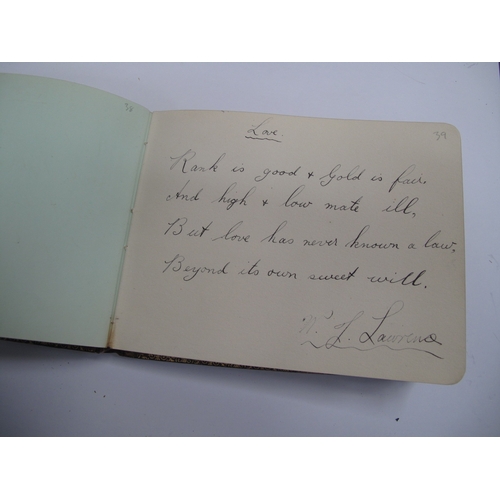 38
39
Love.
Rank is good + Gold is fair,
And high + low mate ill,
But love has never known a law,
Beyond its own sweet will.
L. Lawrence